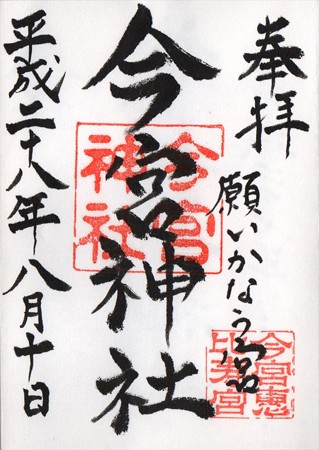 奉拝
願いかなう宮
今宮神社
平成二十八年八月十日
今宮
神社
今宮惠
比寿宮